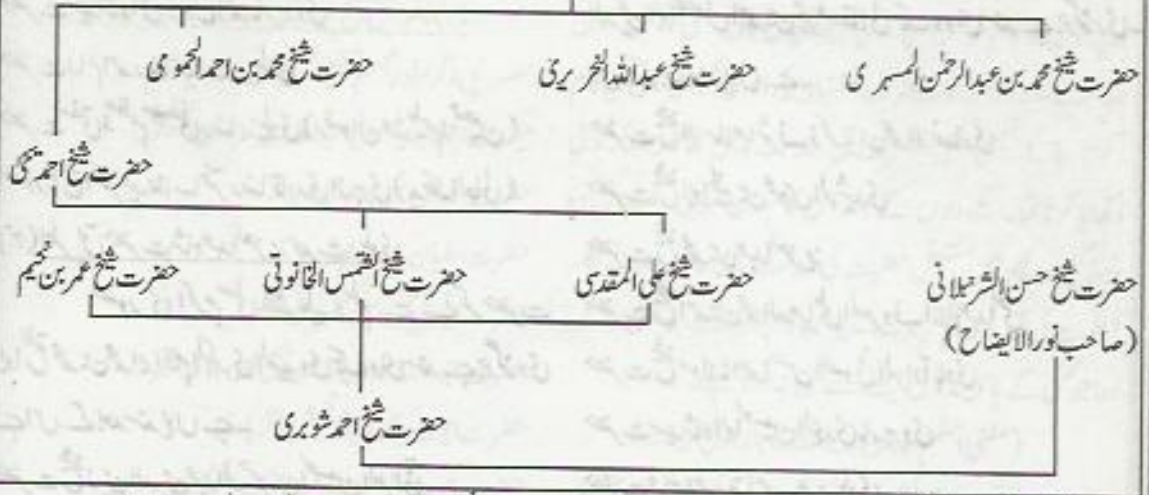 حضرت شیخ محمد بن عبدالرحمٰن المسہری
حضرت شیخ عبداللہ الخریری
حضرت شیخ محمد بن احمد الحمومی
حضرت شیخ احمد یحیٰ
حضرت شیخ حسن الشرنبلانی
(صاحب نور الایضاح)
حضرت شیخ علی المقدسی
حضرت شیخ الشمس الخانوتی
حضرت شیخ عمر بن نجیم
حضرت شیخ احمد شوبری